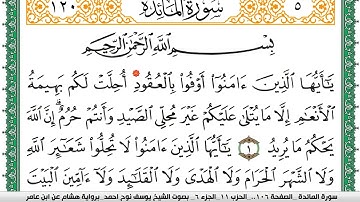 ١٢٠ سُورَةُ المَائِدَةِ ٥
بِسْمِ اللَّهِ الرَّحْمَٰنِ الرَّحِيمِ
يَٰٓأَيُّهَا ٱلَّذِينَ ءَامَنُوٓاْ أَوۡفُواْ بِٱلۡعُقُودِ أُحِلَّتۡ لَكُم بَهِيمَةُ
ٱلۡأَنۡعَٰمِ إِلَّا مَا يُتۡلَىٰ عَلَيۡكُمۡ غَيۡرَ مُحِلِّي ٱلصَّيۡدِ وَأَنتُمۡ حُرُمٌۗ إِنَّ ٱللَّهَ
يَحۡكُمُ مَا يُرِيدُ ١ يَٰٓأَيُّهَا ٱلَّذِينَ ءَامَنُواْ لَا تُحِلُّواْ شَعَٰٓئِرَ ٱللَّهِ
وَلَا ٱلشَّهۡرَ ٱلۡحَرَامَ وَلَا ٱلۡهَدۡيَ وَلَا ٱلۡقَلَٰٓئِدَ وَلَآ ءَآمِّينَ ٱلۡبَيۡتَ
سورة المائدة _الصفحة ١٠٦.._ الحزب ١١_الجزء ٦_ بصوت الشيخ يوسف نوح احمد_برواية هشام عن ابن عامر